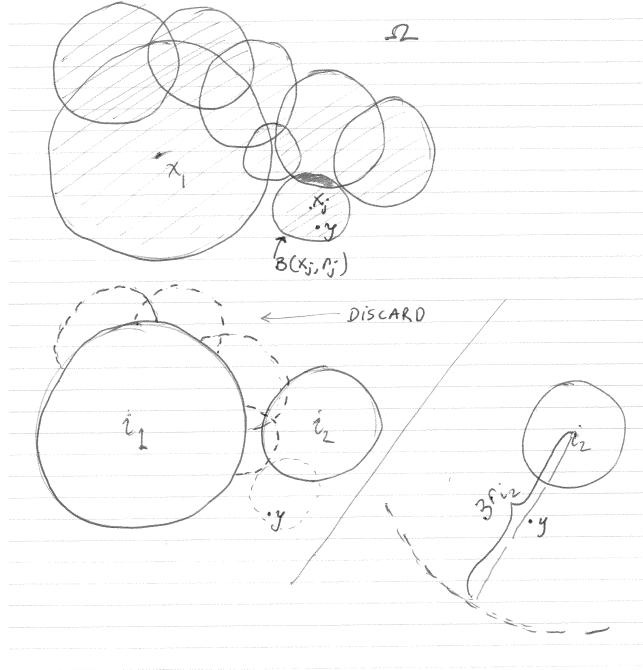 Ω
x₁
xⱼ
y
B(xⱼ, rⱼ)
DISCARD
i₁
i₂
y
i₂
3rᵢ₂
y